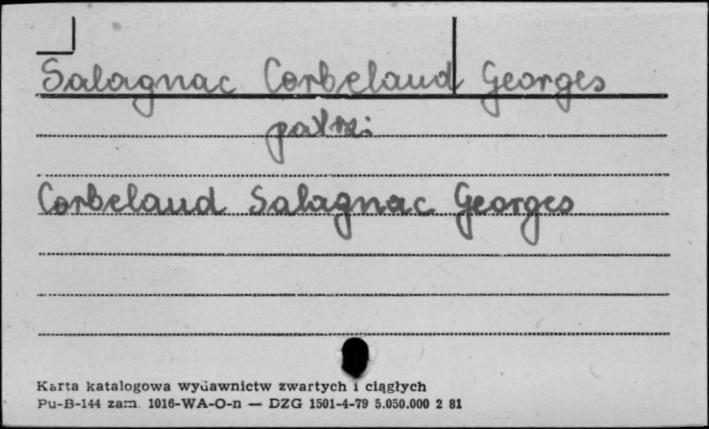 Salagnac Corbelaud Georges
patrz:
Corbelaud Salagnac Georges
Karta katalogowa wydawnictw zwartych i ciągłych
Pu-B-144 zam. 1016-WA-O-n — DZG 1501-4-79 5.050.000 2 81